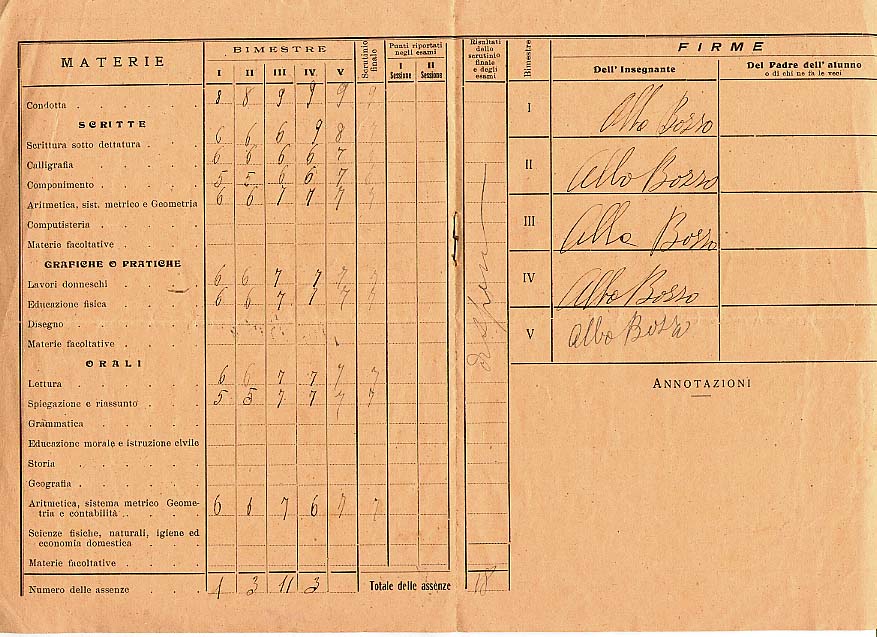 MATERIE
BIMESTRE
I II III IV V
Scrutinio finale
Punti riportati negli esami
I Sessione
II Sessione
Risultati dello scrutinio finale e degli esami
Condotta 8 8 9 9 9 9
SCRITTE
Scrittura sotto dettatura 6 6 6 9 8
Calligrafia 6 6 6 6 7
Componimento 5 5 6 6 7
Aritmetica, sist. metrico e Geometria 6 6 7 7 7
Computisteria
Materie facoltative
GRAFICHE O PRATICHE
Lavori donneschi 6 6 7 7 7 7
Educazione fisica 6 6 7 7 7 7
Disegno
Materie facoltative
ORALI
Lettura 6 6 7 7 7 7
Spiegazione e riassunto 5 5 7 7 7 7
Grammatica
Educazione morale e istruzione civile
Storia
Geografia
Aritmetica, sistema metrico Geome-
tria e contabilità 6 6 7 6 7 7
Scienze fisiche, naturali, igiene ed
economia domestica
Materie facoltative
Numero delle assenze 1 3 11 3
Totale delle assenze 18
Bimestre
FIRME
Dell' Insegnante
Del Padre dell' alunno
o di chi ne fa le veci
I Alba Bozzo
II Alba Bozzo
III Alba Bozzo
IV Alba Bozzo
V Alba Bozzo
ANNOTAZIONI